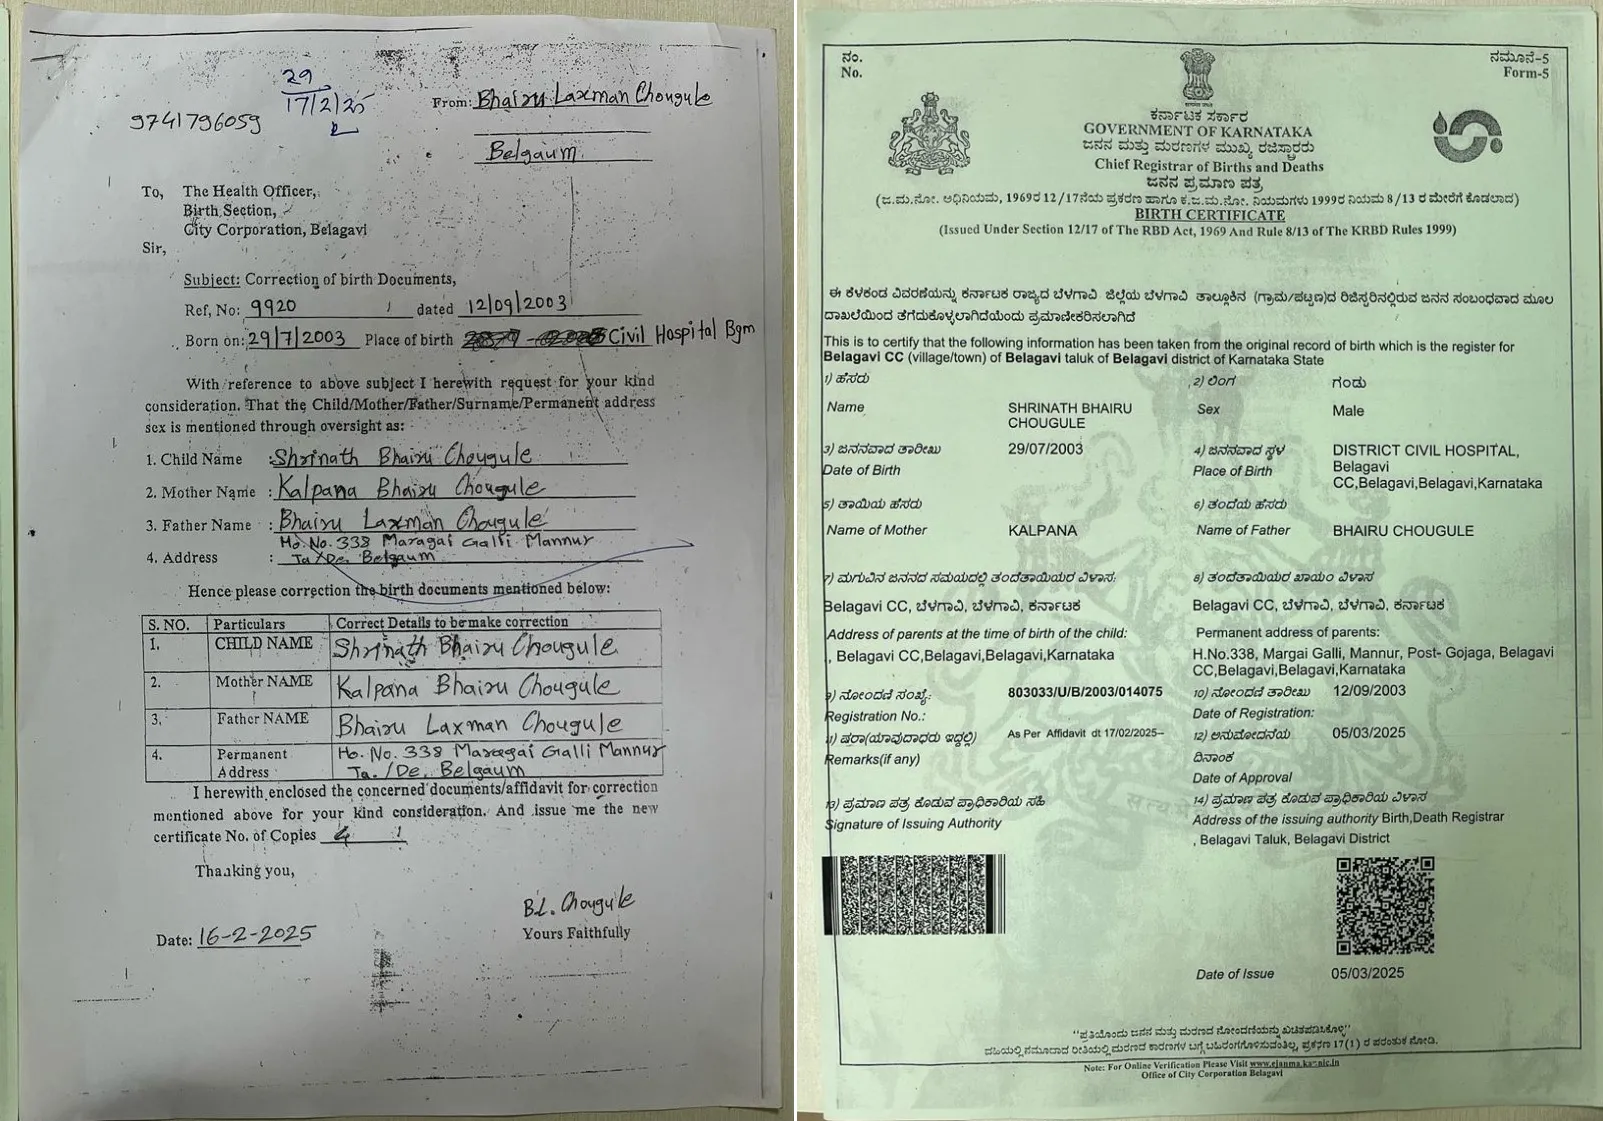 29
17/2/25
9741796059
From: Bhairu Laxman Chougule
Belgaum
To, The Health Officer,
Birth Section,
City Corporation, Belagavi
Sir,
Subject: Correction of birth Documents,
Ref, No: 9920 dated 12/09/2003
Born on: 29/7/2003 Place of birth Civil Hospital Bgm
With reference to above subject I herewith request for your kind
consideration. That the Child/Mother/Father/Surname/Permanent address
sex is mentioned through oversight as:
1. Child Name : Shrinath Bhairu Chougule
2. Mother Name : Kalpana Bhairu Chougule
3. Father Name : Bhairu Laxman Chougule
Ho. No. 338 Maragai Galli Mannur
4. Address : Ta/De. Belgaum
Hence please correction the birth documents mentioned below:
S. NO. Particulars Correct Details to be make correction
1. CHILD NAME Shrinath Bhairu Chougule
2. Mother NAME Kalpana Bhairu Chougule
3. Father NAME Bhairu Laxman Chougule
4. Permanent Ho. No. 338 Maragai Galli Mannur
Address Ta./De. Belgaum
I herewith enclosed the concerned documents/affidavit for correction
mentioned above for your kind consideration. And issue me the new
certificate No. of Copies 4
Thanking you,
B.L. Chougule
Date: 16-2-2025 Yours Faithfully
ನಂ. ನಮೂನೆ-5
No. Form-5
ಕರ್ನಾಟಕ ಸರ್ಕಾರ
GOVERNMENT OF KARNATAKA
ಜನನ ಮತ್ತು ಮರಣಗಳ ಮುಖ್ಯ ರಜಿಸ್ಟ್ರಾರರು
Chief Registrar of Births and Deaths
ಜನನ ಪ್ರಮಾಣ ಪತ್ರ
(ಜ.ಮ.ನೋ. ಅಧಿನಿಯಮ, 1969ರ 12/17ನೆಯ ಪ್ರಕರಣ ಹಾಗೂ ಕ.ಜ.ಮ.ನೋ. ನಿಯಮಗಳು 1999ರ ನಿಯಮ 8/13 ರ ಮೇರೆಗೆ ಕೊಡಲಾದ)
BIRTH CERTIFICATE
(Issued Under Section 12/17 of The RBD Act, 1969 And Rule 8/13 of The KRBD Rules 1999)
ಈ ಕೆಳಕಂಡ ವಿವರಣೆಯನ್ನು ಕರ್ನಾಟಕ ರಾಜ್ಯದ ಬೆಳಗಾವಿ ಜಿಲ್ಲೆಯ ಬೆಳಗಾವಿ ತಾಲ್ಲೂಕಿನ (ಗ್ರಾಮ/ಪಟ್ಟಣ)ದ ರಿಜಿಸ್ಟರಿನಲ್ಲಿರುವ ಜನನ ಸಂಬಂಧವಾದ ಮೂಲ
ದಾಖಲೆಯಿಂದ ತೆಗೆದುಕೊಳ್ಳಲಾಗಿದೆಯೆಂದು ಪ್ರಮಾಣೀಕರಿಸಲಾಗಿದೆ
This is to certify that the following information has been taken from the original record of birth which is the register for
Belagavi CC (village/town) of Belagavi taluk of Belagavi district of Karnataka State
1) ಹೆಸರು 2) ಲಿಂಗ ಗಂಡು
Name SHRINATH BHAIRU Sex Male
CHOUGULE
3) ಜನನವಾದ ತಾರೀಖು 29/07/2003 4) ಜನನವಾದ ಸ್ಥಳ DISTRICT CIVIL HOSPITAL,
Date of Birth Place of Birth Belagavi
CC,Belagavi,Belagavi,Karnataka
5) ತಾಯಿಯ ಹೆಸರು 6) ತಂದೆಯ ಹೆಸರು
Name of Mother KALPANA Name of Father BHAIRU CHOUGULE
7) ಮಗುವಿನ ಜನನದ ಸಮಯದಲ್ಲಿ ತಂದೆತಾಯಿಯರ ವಿಳಾಸ: 8) ತಂದೆತಾಯಿಯರ ಖಾಯಂ ವಿಳಾಸ
Belagavi CC, ಬೆಳಗಾವಿ, ಬೆಳಗಾವಿ, ಕರ್ನಾಟಕ Belagavi CC, ಬೆಳಗಾವಿ, ಬೆಳಗಾವಿ, ಕರ್ನಾಟಕ
Address of parents at the time of birth of the child: Permanent address of parents:
, Belagavi CC,Belagavi,Belagavi,Karnataka H.No.338, Margai Galli, Mannur, Post- Gojaga, Belagavi
CC,Belagavi,Belagavi,Karnataka
9) ನೋಂದಣಿ ಸಂಖ್ಯೆ: 803033/U/B/2003/014075 10) ನೋಂದಣಿ ತಾರೀಖು 12/09/2003
Registration No.: Date of Registration:
11) ಷರಾ(ಯಾವುದಾದರು ಇದ್ದಲ್ಲಿ) As Per Affidavit dt 17/02/2025-- 12) ಅನುಮೋದನೆಯ 05/03/2025
Remarks(if any) ದಿನಾಂಕ
Date of Approval
13) ಪ್ರಮಾಣ ಪತ್ರ ಕೊಡುವ ಪ್ರಾಧಿಕಾರಿಯ ಸಹಿ 14) ಪ್ರಮಾಣ ಪತ್ರ ಕೊಡುವ ಪ್ರಾಧಿಕಾರಿಯ ವಿಳಾಸ
Signature of Issuing Authority Address of the issuing authority Birth,Death Registrar
, Belagavi Taluk, Belagavi District
Date of Issue 05/03/2025
"ಪ್ರತಿಯೊಂದು ಜನನ ಮತ್ತು ಮರಣದ ನೋಂದಣಿಯನ್ನು ಖಚಿತಪಡಿಸಿಕೊಳ್ಳಿ"
ಮರಣದ ಕಾರಣಗಳ ಬಗ್ಗೆ ಬಹಿರಂಗಗೊಳಿಸುವಂತಿಲ್ಲ, ಪ್ರಕರಣ 17(1) ರ ಪರಂತುಕ ನೋಡಿ.
Note: For Online Verification Please Visit www.ejanma.kar.nic.in
Office of City Corporation Belagavi